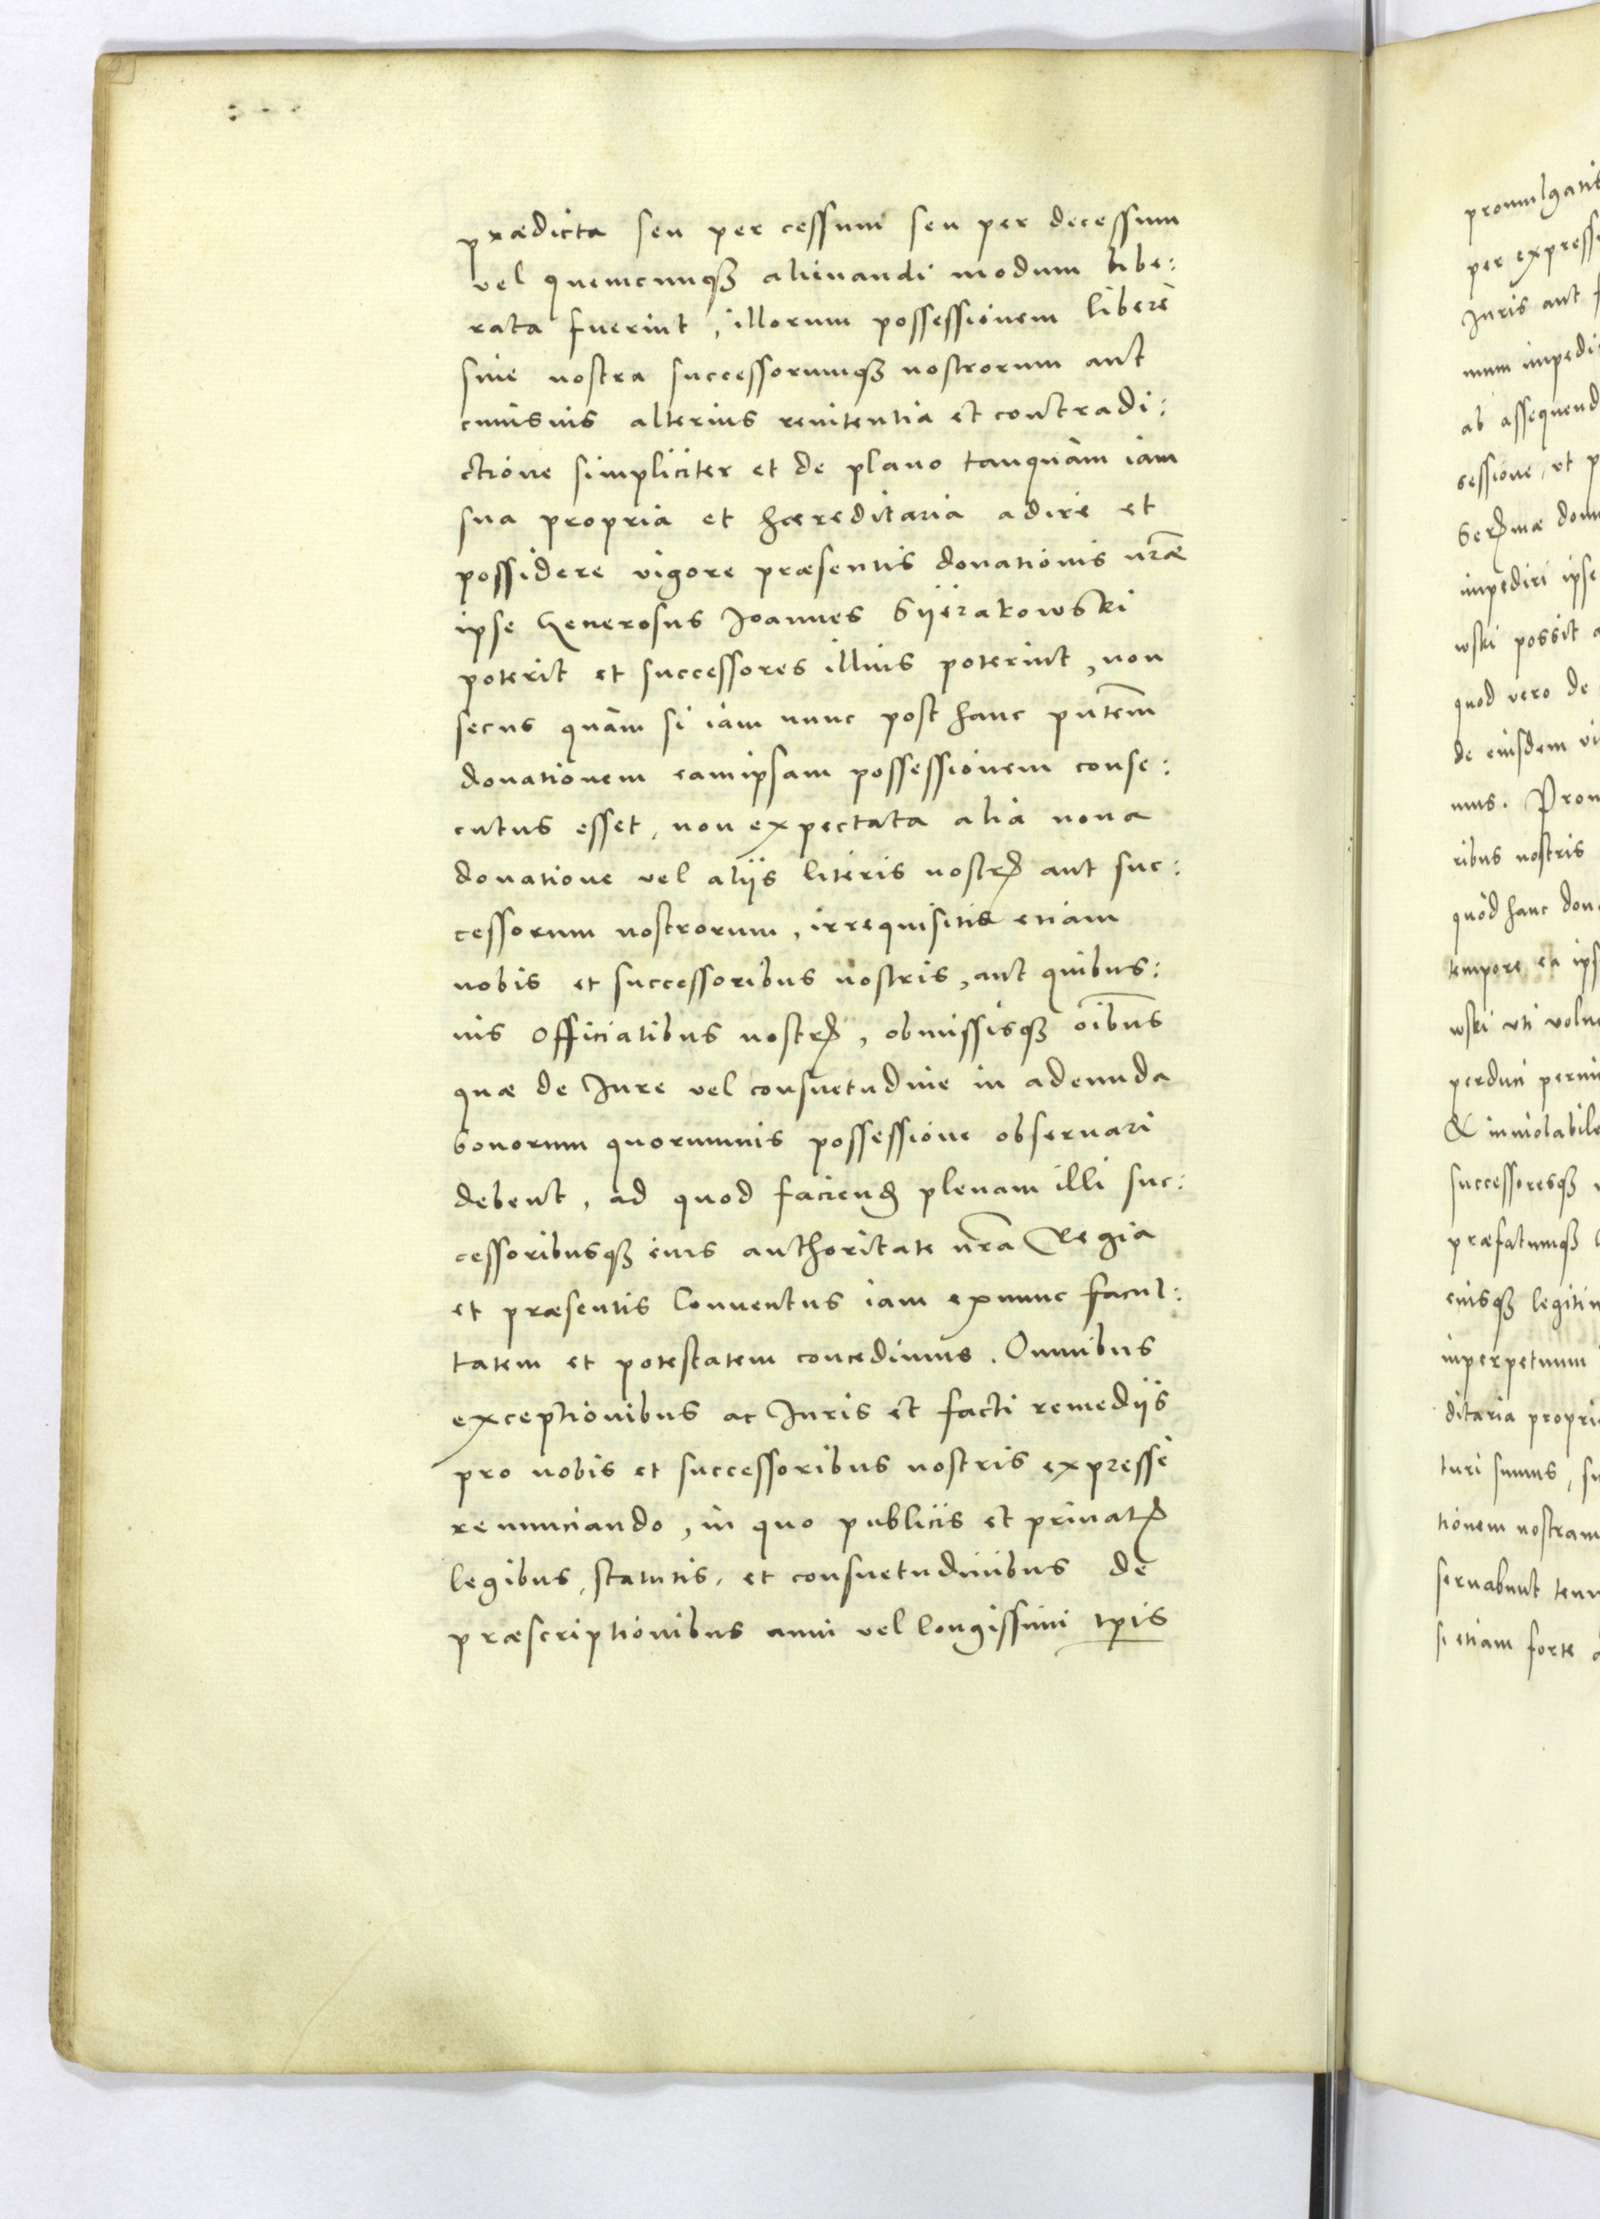 prædicta seu per cessum seu per decessum
vel quemcunqȝ alienandi modum libe:
rata fuerint, illorum possessionem liberè
sine nostra successorumqȝ nostrorum aut
cuiusuis alterius renitentia et contradi:
ctione simpliciter et de plano tanquàm iam
sua propria et hæreditaria adire et
possidere vigore præsentis donationis nr̃æ
ipse Generosus Joannes Syerakowski
poterit et successores illius poterint, non
secus quàm si iàm nunc post hanc pñtem
donationem eamipsam possessionem conse:
cutus esset, non expectata alia noua
donatione vel aliis literis nostrꝭ aut suc:
cessorum nostrorum, irrequisitis etiam
nobis et successoribus nostris, aut quibus:
uis officialibus nostrꝭ, obmissisqȝ oĩbus
quæ de Jure vel consuetudine in adeunda
bonorum quorumuis possessione obseruari
debent, ad quod faciendꝭ plenam illi suc:
cessoribusqȝ eius authoritate nr̃a Regia
et præsentis Conuentus iam exnunc facul:
tatem et potestatem concedimus. Omnibus
exceptionibus ac Juris et facti remediis
pro nobis et successoribus nostris expressè
renunciando, in quo publicis et priuatꝭ
legibus, statutis, et consuetudinibus de
præscriptionibus anni vel longissimi tp̱is
promulgatis
per express
Juris aut f
mum impedi
ab assequend
sessione, vt p
Serꝭmæ dom
impediri ipse
wski possit a
quod vero de
de eiusdem vi
mus. Prom
ribus nostris
quòd hanc don
tempore ea ips
wski vti volu
perduci permi
& inuiolabile
successoresqȝ
præfatumqȝ
eiusqȝ legitim
inperpetuum
ditaria propri
turi sumus, su
tionem nostram
seruabunt tenu
si etiam forte a